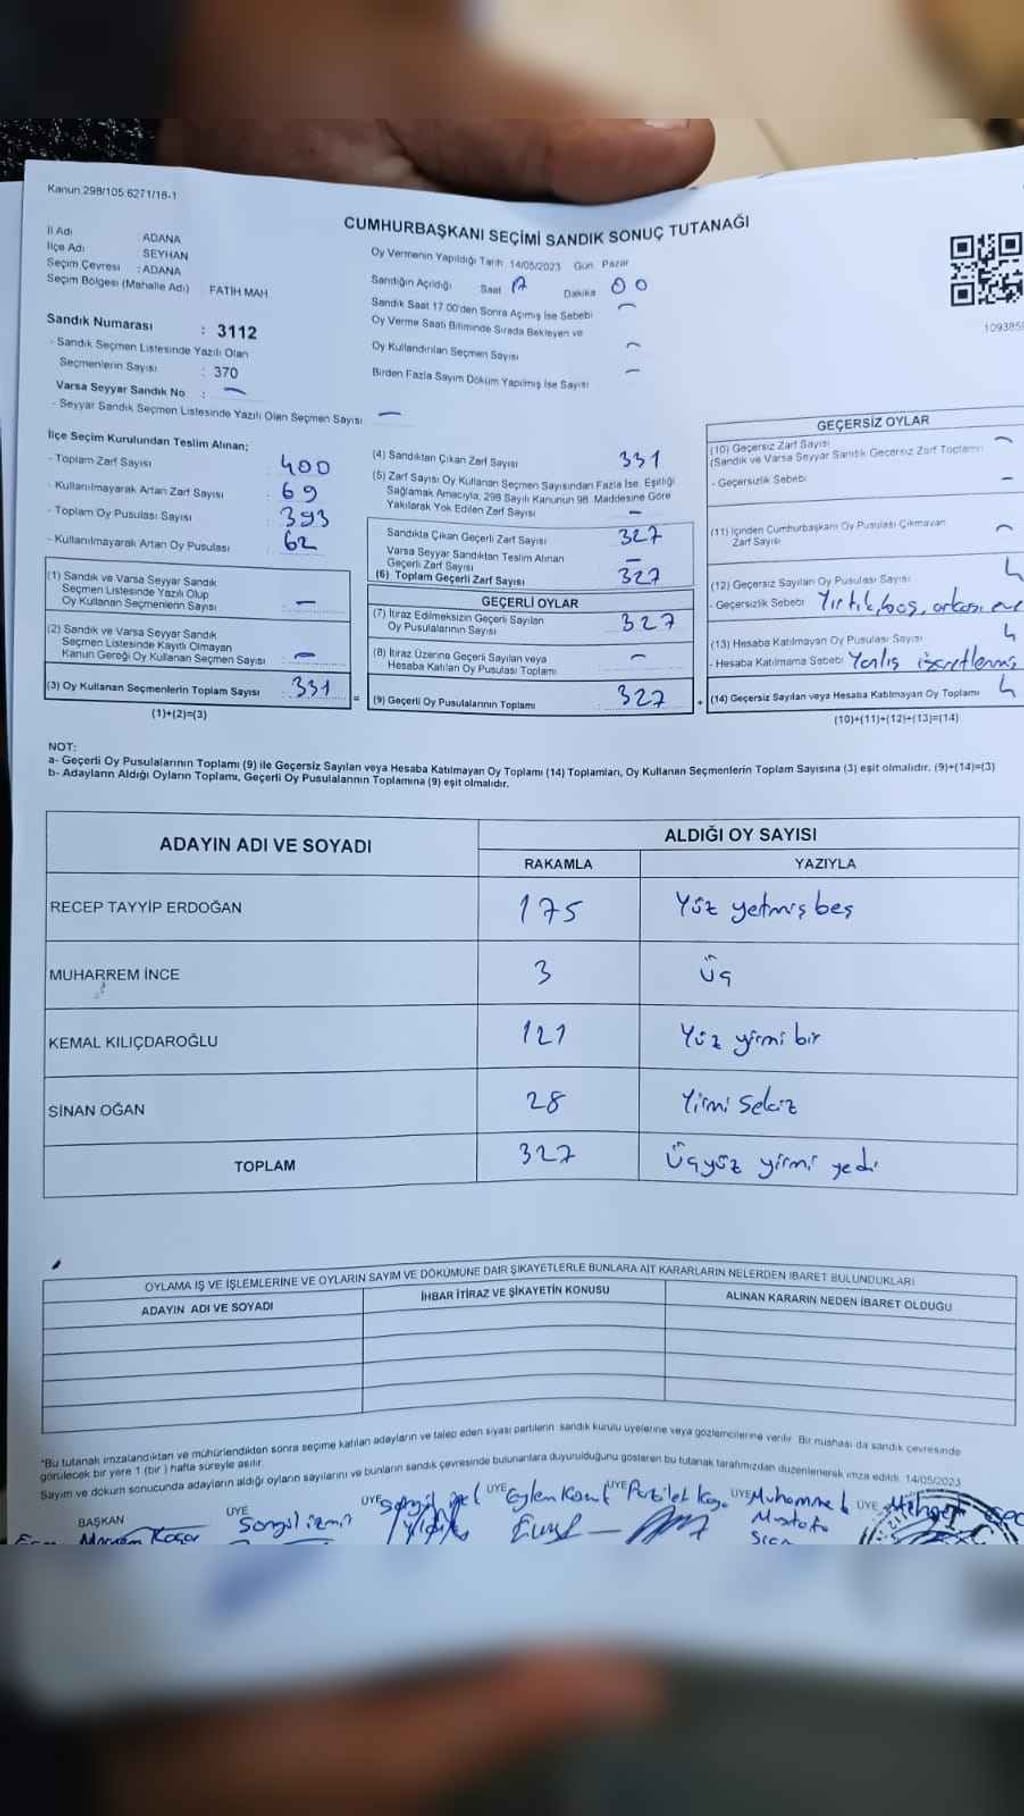 Kanun:298/105.6271/18-1
CUMHURBAŞKANI SEÇİMİ SANDIK SONUÇ TUTANAĞI
İl Adı : ADANA
İlçe Adı : SEYHAN
Seçim Çevresi : ADANA
Seçim Bölgesi (Mahalle Adı) FATİH MAH
Sandık Numarası : 3112
- Sandık Seçmen Listesinde Yazılı Olan
Seçmenlerin Sayısı : 370
Varsa Seyyar Sandık No : -
- Seyyar Sandık Seçmen Listesinde Yazılı Olan Seçmen Sayısı -
Oy Vermenin Yapıldığı Tarih 14/05/2023 Gün Pazar
Sandığın Açıldığı Saat 17 Dakika 00
Sandık Saat 17.00'den Sonra Açımış İse Sebebi -
Oy Verme Saati Bitiminde Sırada Bekleyen ve
Oy Kullandırılan Seçmen Sayısı -
Birden Fazla Sayım Döküm Yapılmış İse Sayısı -
109385
İlçe Seçim Kurulundan Teslim Alınan;
- Toplam Zarf Sayısı : 400
- Kullanılmayarak Artan Zarf Sayısı : 69
- Toplam Oy Pusulası Sayısı : 393
- Kullanılmayarak Artan Oy Pusulası : 62
(1) Sandık ve Varsa Seyyar Sandık
Seçmen Listesinde Yazılı Olup
Oy Kullanan Seçmenlerin Sayısı : -
(2) Sandık ve Varsa Seyyar Sandık
Seçmen Listesinde Kayıtlı Olmayan
Kanun Gereği Oy Kullanan Seçmen Sayısı : -
(3) Oy Kullanan Seçmenlerin Toplam Sayısı : 331
(1)+(2)=(3)
(4) Sandıktan Çıkan Zarf Sayısı 331
(5) Zarf Sayısı Oy Kullanan Seçmen Sayısından Fazla İse, Eşitliği
Sağlamak Amacıyla, 298 Sayılı Kanunun 98. Maddesine Göre
Yakılarak Yok Edilen Zarf Sayısı -
Sandıkta Çıkan Geçerli Zarf Sayısı 327
Varsa Seyyar Sandıktan Teslim Alınan
Geçerli Zarf Sayısı -
(6) Toplam Geçerli Zarf Sayısı 327
GEÇERLİ OYLAR
(7) İtiraz Edilmeksizin Geçerli Sayılan
Oy Pusulalarının Sayısı 327
(8) İtiraz Üzerine Geçerli Sayılan veya
Hesaba Katılan Oy Pusulası Toplamı -
(9) Geçerli Oy Pusulalarının Toplamı 327
GEÇERSİZ OYLAR
(10) Geçersiz Zarf Sayısı -
(Sandık ve Varsa Seyyar Sandık Geçersiz Zarf Toplamı)
- Geçersizlik Sebebi -
(11) İçinden Cumhurbaşkanı Oy Pusulası Çıkmayan
Zarf Sayısı -
(12) Geçersiz Sayılan Oy Pusulası Sayısı 4
- Geçersizlik Sebebi Yırtık, boş, arkası
(13) Hesaba Katılmayan Oy Pusulası Sayısı 4
- Hesaba Katılmama Sebebi Yanlış işaretlenmiş
(14) Geçersiz Sayılan veya Hesaba Katılmayan Oy Toplamı 4
(10)+(11)+(12)+(13)=(14)
NOT:
a- Geçerli Oy Pusulalarının Toplamı (9) ile Geçersiz Sayılan veya Hesaba Katılmayan Oy Toplamı (14) Toplamları, Oy Kullanan Seçmenlerin Toplam Sayısına (3) eşit olmalıdır. (9)+(14)=(3)
b- Adayların Aldığı Oyların Toplamı, Geçerli Oy Pusulalarının Toplamına (9) eşit olmalıdır.
ADAYIN ADI VE SOYADI ALDIĞI OY SAYISI
RAKAMLA YAZIYLA
RECEP TAYYİP ERDOĞAN 175 Yüz yetmiş beş
MUHARREM İNCE 3 Üç
KEMAL KILIÇDAROĞLU 121 Yüz yirmi bir
SİNAN OĞAN 28 Yirmi sekiz
TOPLAM 327 Üçyüz yirmi yedi
OYLAMA İŞ VE İŞLEMLERİNE VE OYLARIN SAYIM VE DÖKÜMÜNE DAİR ŞİKAYETLERLE BUNLARA AİT KARARLARIN NELERDEN İBARET BULUNDUKLARI
ADAYIN ADI VE SOYADI İHBAR İTİRAZ VE ŞİKAYETİN KONUSU ALINAN KARARIN NEDEN İBARET OLDUĞU
*Bu tutanak imzalandıktan ve mühürlendikten sonra seçime katılan adayların ve talep eden siyasi partilerin sandık kurulu üyelerine veya gözlemcilerine verilir. Bir nüshası da sandık çevresinde
görülecek bir yere 1 (bir ) hafta süreyle asılır.
Sayım ve döküm sonucunda adayların aldığı oyların sayılarını ve bunların sandık çevresinde bulunanlara duyurulduğunu gösteren bu tutanak tarafımızdan düzenlenerek imza edildi. 14/05/2023
BAŞKAN ÜYE ÜYE ÜYE ÜYE ÜYE ÜYE
Songül izmir
Muhammed
Mustafa
Mehmet